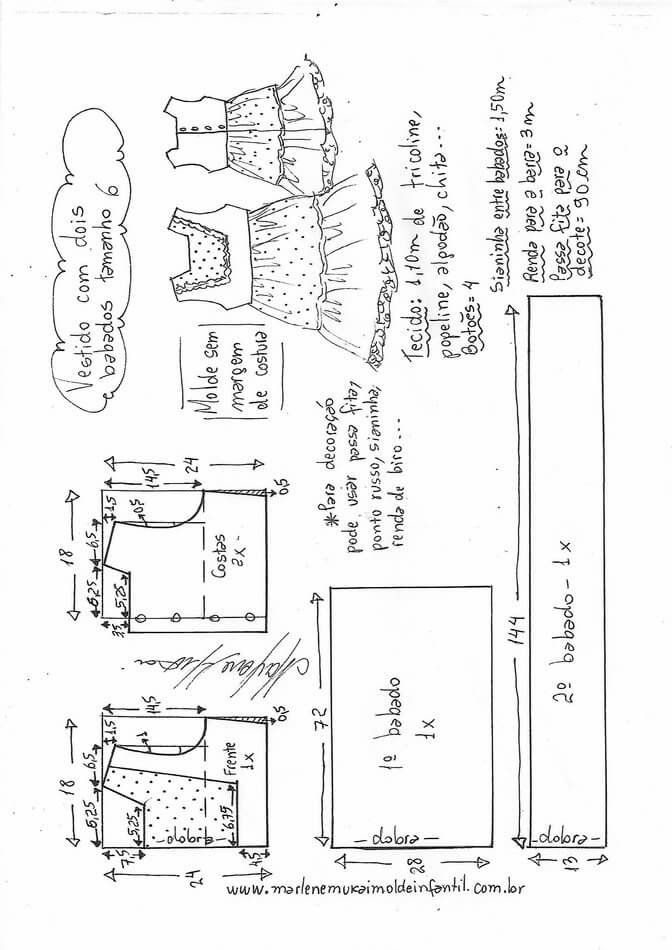 Vestido com dois
babados tamanho 6
Molde sem
margem
de costura
Tecido: 1,10m de tricoline,
popeline, algodão, chita...
Botões= 4
Sianinha entre babados= 1,50m
Renda para a barra= 3 m
Passa fita para o
decote= 90 cm
*Para decoração
pode usar passa fita,
ponto russo, sianinha,
renda de biro...
18
5,25
6,5
1,5
14,5
24
5,25
3,5
0,5
Costas
2x
0,5
18
5,25
6,5
1,5
14,5
1
7,5
5,25
6,75
4,5
24
Frente
1x
dobra
0,5
72
1º babado
1x
dobra
28
144
2º babado - 1x
dobra
13
www.marlenemukaimoldeinfantil.com.br